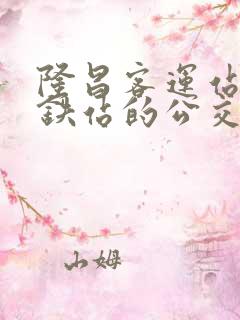 隆昌客运站
铁站的公交
山姆